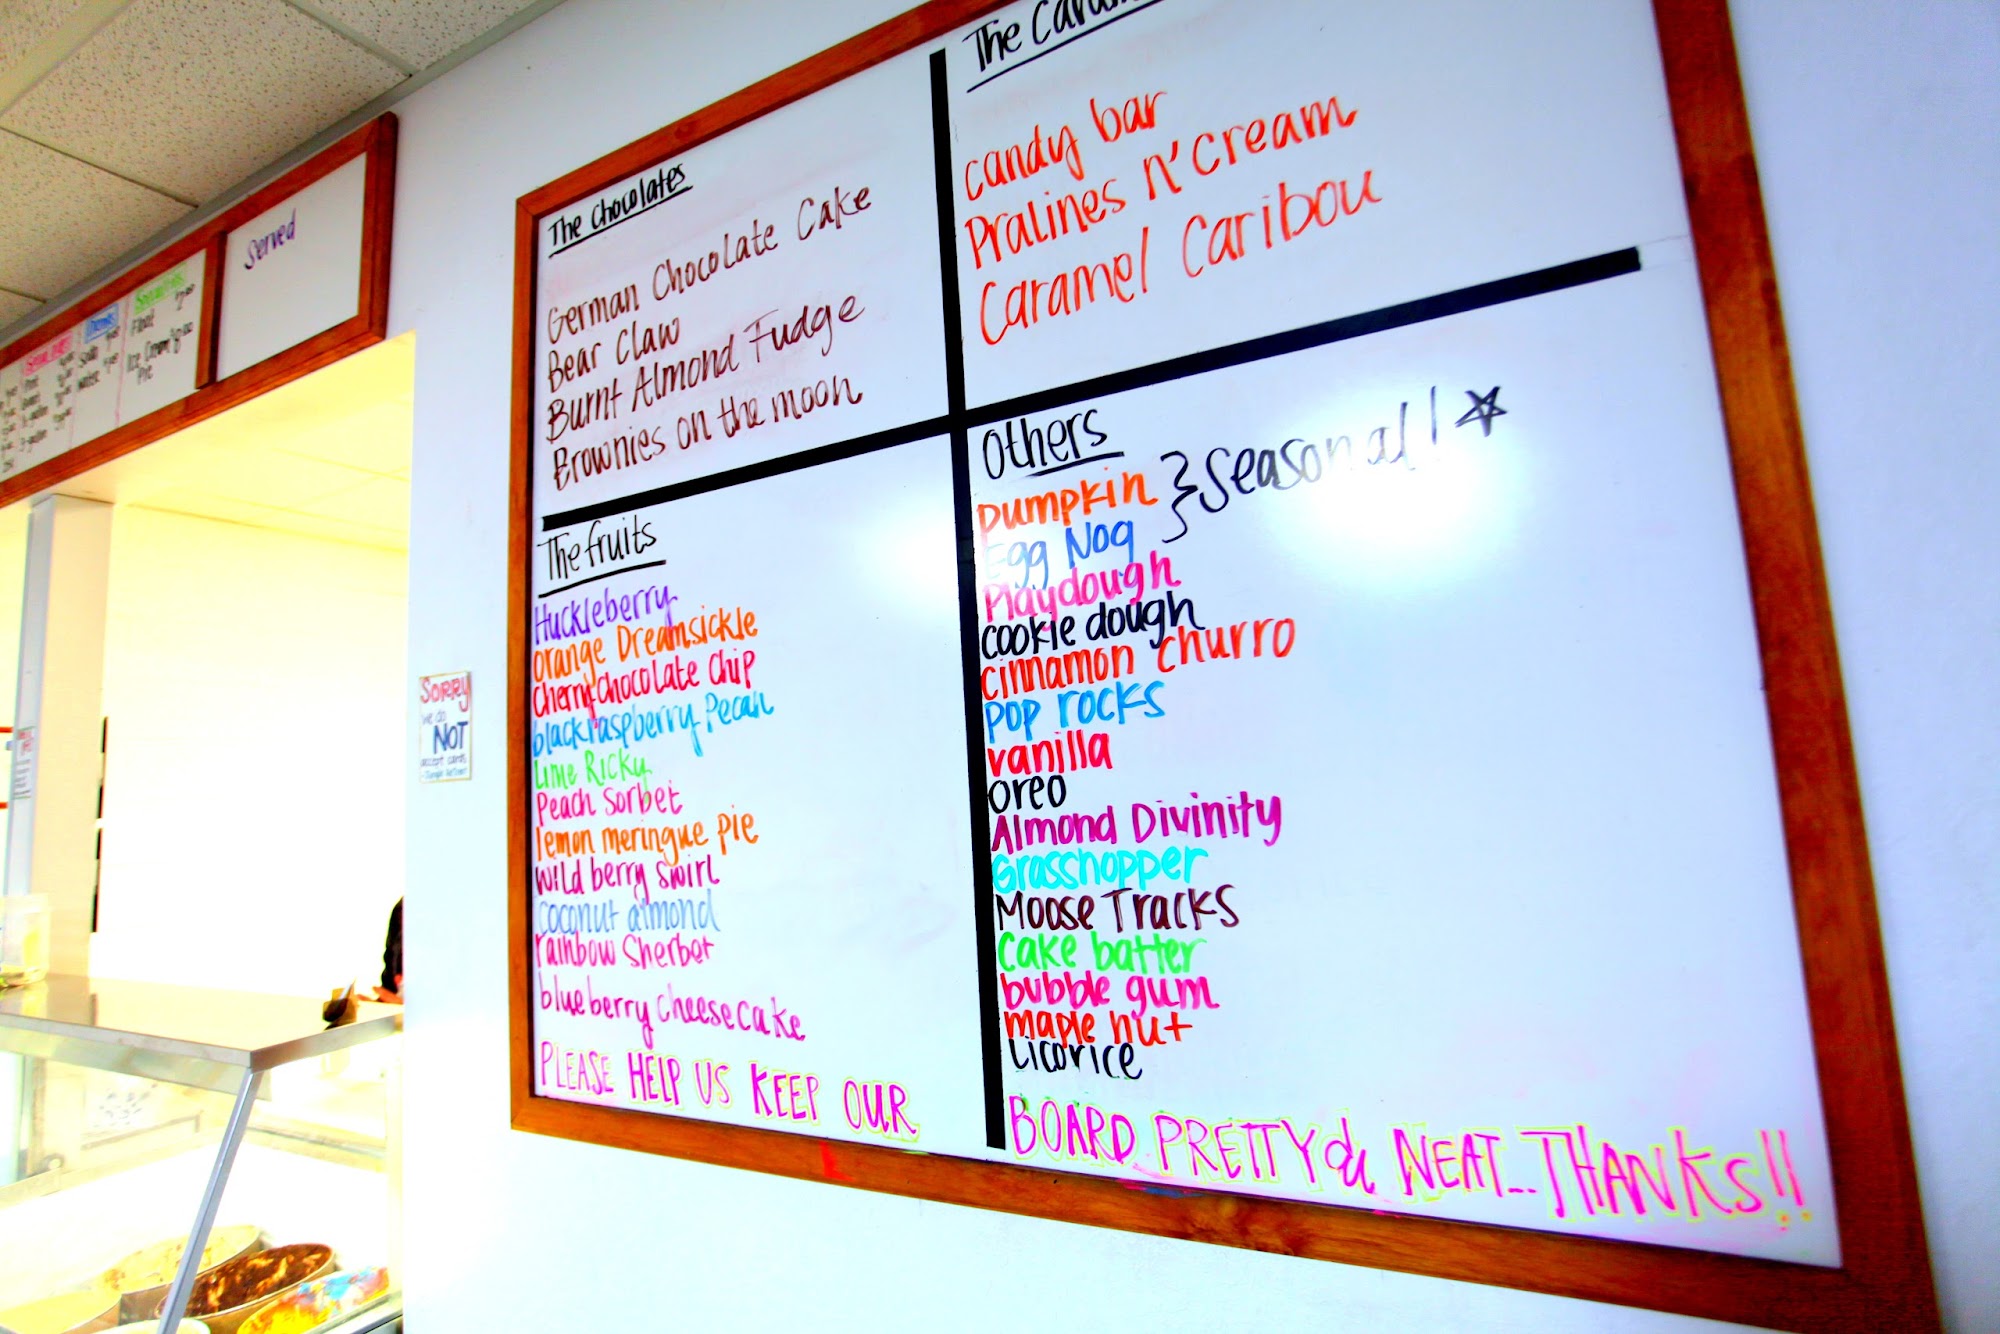 The Chocolates
German Chocolate Cake
Bear Claw
Burnt Almond Fudge
Brownies on the moon
The
candy bar
Pralines n' Cream
Caramel Caribou
The fruits
Huckleberry
Orange Dreamsickle
Cherry Chocolate Chip
black raspberry Pecan
Lime Ricky
Peach Sorbet
lemon meringue pie
wild berry swirl
coconut almond
rainbow Sherbet
blueberry cheesecake
Others
Pumpkin } Seasonal! 
Egg Nog
Playdough
cookie dough
cinnamon churro
pop rocks
vanilla
oreo
Almond Divinity
Grasshopper
Moose Tracks
Cake batter
bubble gum
maple nut
Licorice
PLEASE HELP US KEEP OUR BOARD PRETTY & NEAT... THANKS!!
Served
Float
Ice Cream
Pie
Soda
Water
SORRY
we do
NOT
accept cards